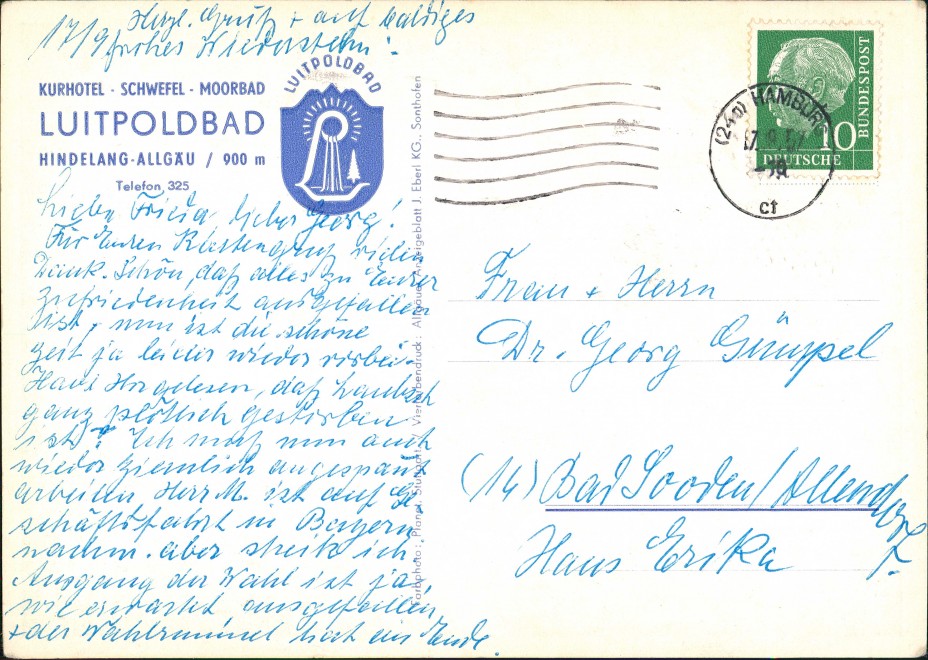 Herzl. Gruß + auf baldiges
17/9 frohes Wiedersehn!
KURHOTEL - SCHWEFEL - MOORBAD
LUITPOLDBAD
HINDELANG-ALLGÄU / 900 m
Telefon 325
LUITPOLDBAD
Liebe Frieda, lieber Georg!
Für Euren Kartengruß vielen
Dank. Schön, daß alles zu Eurer
Zufriedenheit ausgefallen
ist, nun ist die schöne
Zeit ja leider wieder vorbei.
Habt Ihr gelesen, daß
ganz plötzlich gestorben
ist? Ich muß nun auch
wieder ziemlich angespannt
arbeiten. Herr M. ist auf Ge
schäftsfahrt in Bayern,
nachm. aber streik ich.
Ausgang der Wahl ist ja
wie erwartet ausgefallen
+ der Wahlrummel hat ein Ende.
Farbphoto: Planet, Stuttgart Vierfarbendruck: Allgäuer Anzeigeblatt J. Eberl KG., Sonthofen
(24a) HAMBURG
17.9.57
ct
10
DEUTSCHE
BUNDESPOST
Frau + Herrn
Dr. Georg Gümpel
(14) Bad Sooden/Allendorf
Haus Erika